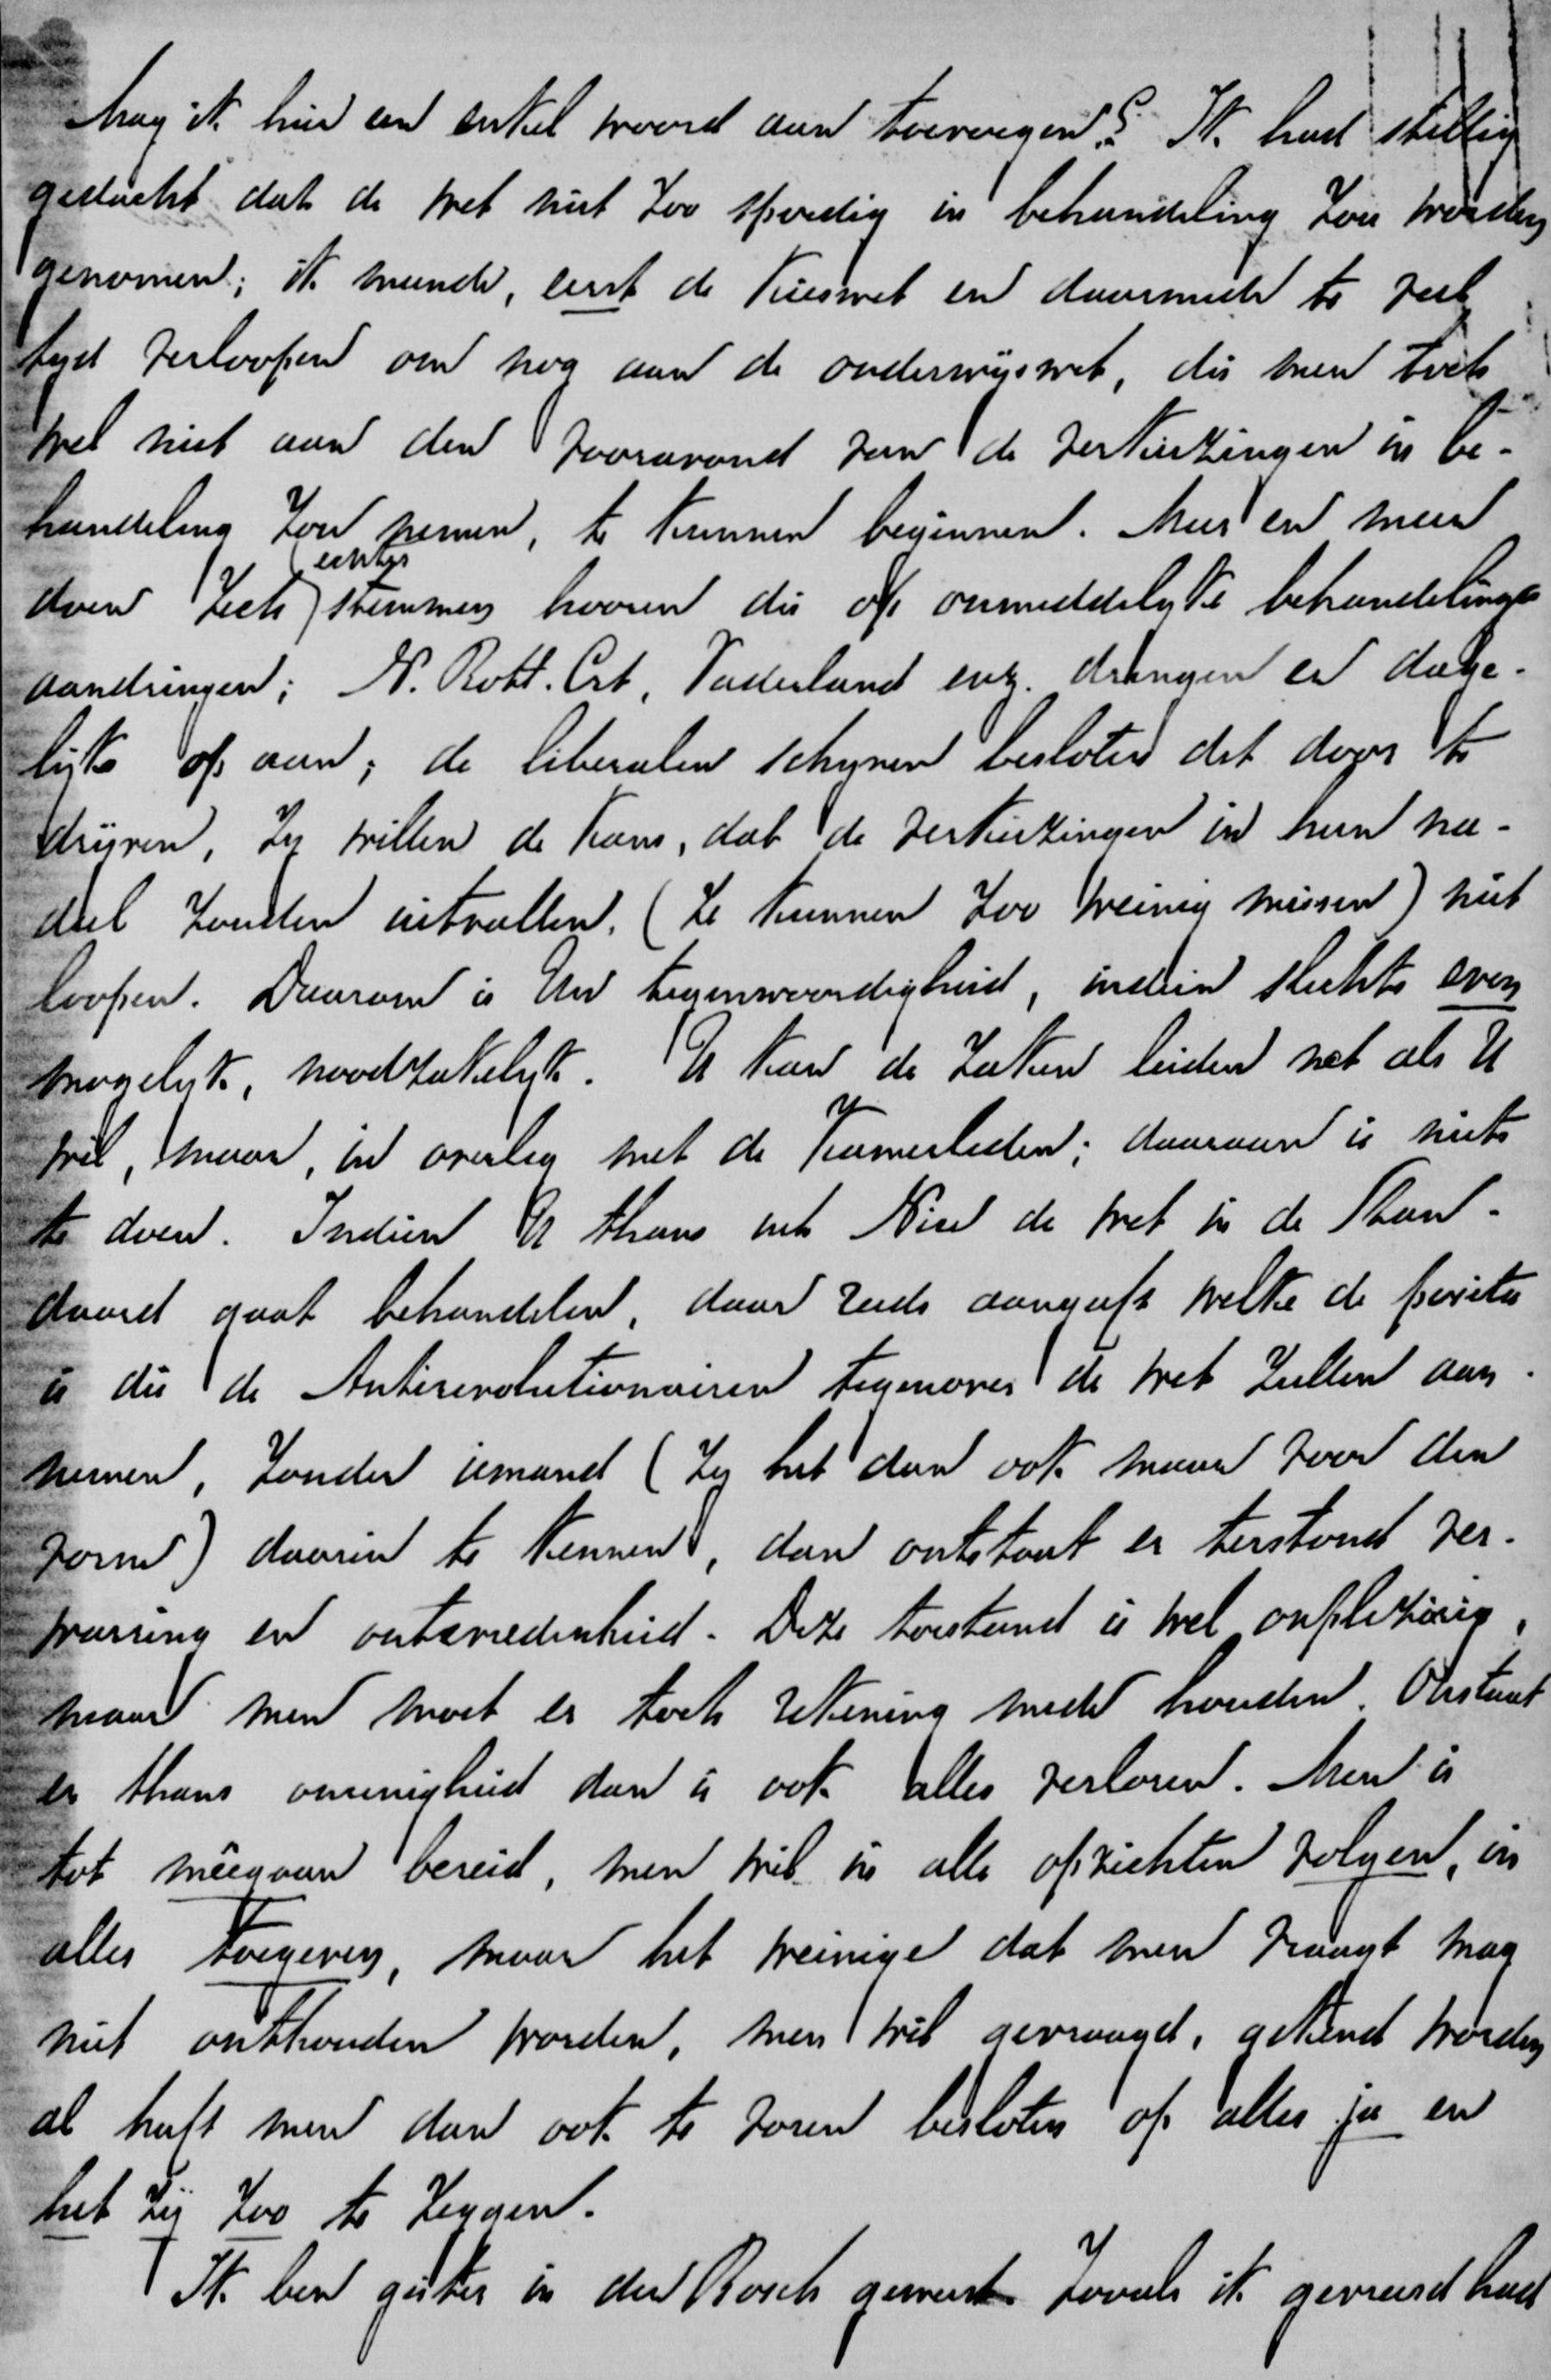 Mag ik hier een enkel woord aan toevoegen? Ik had stellig
gedacht dat de wet niet zoo spoedig in behandeling zou worden
genomen; ik meende, eerst de Kieswet en daarmede te veel
tyd verloopen om nog aan de onderwijswet, die men toch
wel niet aan den vooravond van de verkiezingen in be-
handeling zou nemen, te kunnen beginnen. Meer en meer
doen zich echter stemmen hooren die op onmiddelyke behandeling
aandringen; N. Rott. Crt, Vaderland enz. dringen er dage-
lijks op aan; de liberalen schynen besloten dit door te
drijven, zy willen de kans, dat de verkiezingen in hun na-
deel zouden uitvallen, (ze kunnen zoo weinig missen) niet
loopen. Daarom is Uw tegenwoordigheid, indien slechts even
mogelyk, noodzakelyk. U kan de zaken leiden net als U
wil, maar, in overleg met de Kamerleden; daaraan is niets
te doen. Indien U thans uit Nice de wet in de Stan-
daard gaat behandelen, daar reeds aangeeft welke de positie
is die de Antirevolutionairen tegenover de wet zullen aan-
nemen, zonder iemand (zy het dan ook maar voor den
vorm) daarin te kennen, dan ontstaat er terstond ver-
warring en ontevredenheid. Deze toestand is wel onplezierig,
maar men moet er toch rekening mede houden. Ontstaat
er thans oneenigheid dan is ook alles verloren. Men is
tot meêgaan bereid, men wil in alle opzichten volgen, in
alles toegeven, maar het weinige dat men vraagt mag
niet onthouden worden, men wil gevraagd, gekend worden
al heeft men dan ook te voren besloten op alles ja en
het zij zoo te zeggen.
Ik ben gister in den Bosch geweest. Zooals ik gevreesd had